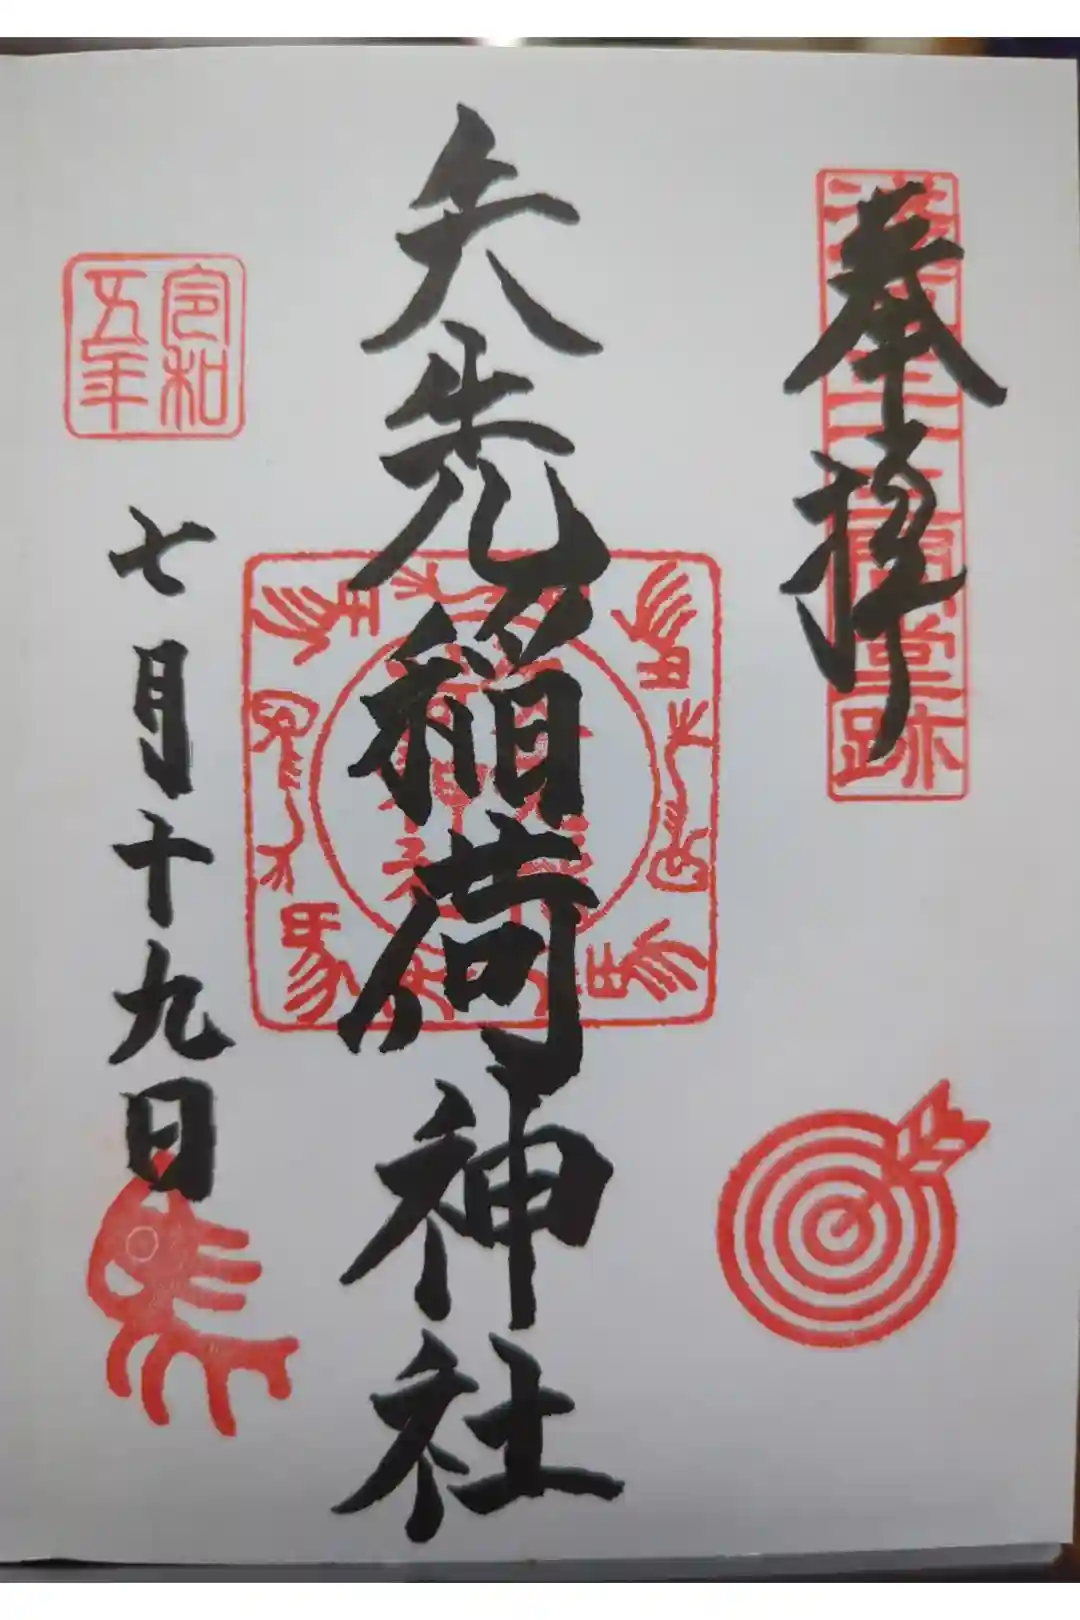 奉拝
浅草三十三間堂跡
矢先稲荷神社
令和
五年
七月十九日